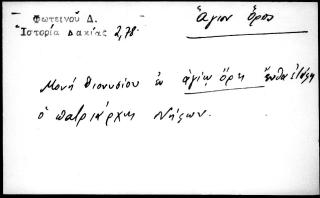 Φωτεινοῦ Δ.
Ἱστορία Δακίας 2,78.
Ἅγιον Ὄρος
Μονή Διονυσίου ἐν ἁγίῳ ὄρει ἔνθα ἐτάφη
ὁ πατριάρχης Νήφων.